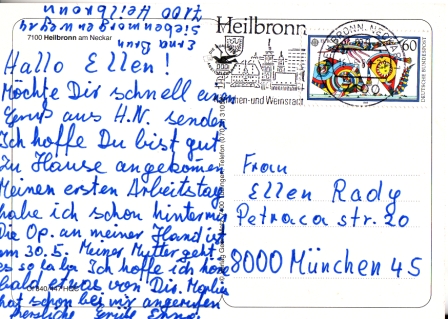 7100 Heilbronn
Siebenmorgenweg 29
Erna Braun
7100 Heilbronn am Neckar
Hallo Ellen!
Möchte Dir schnell einen
Gruß aus H.N. senden
Ich hoffe Du bist gut
zu Hause angekommen
Meinen ersten Arbeitstag
habe ich schon hinter mir
Die Op. an meiner Hand ist
am 30.5. Meiner Mutter geht
es so lala Ich hoffe ich höre
bald etwas von Dir.
hat schon bei mir angerufen
Herzliche Grüße Erna
Heilbronn
und Weinstadt
60
DEUTSCHE BUNDESPOST
Frau
Ellen Rady
Petraca str. 20
8000 München 45